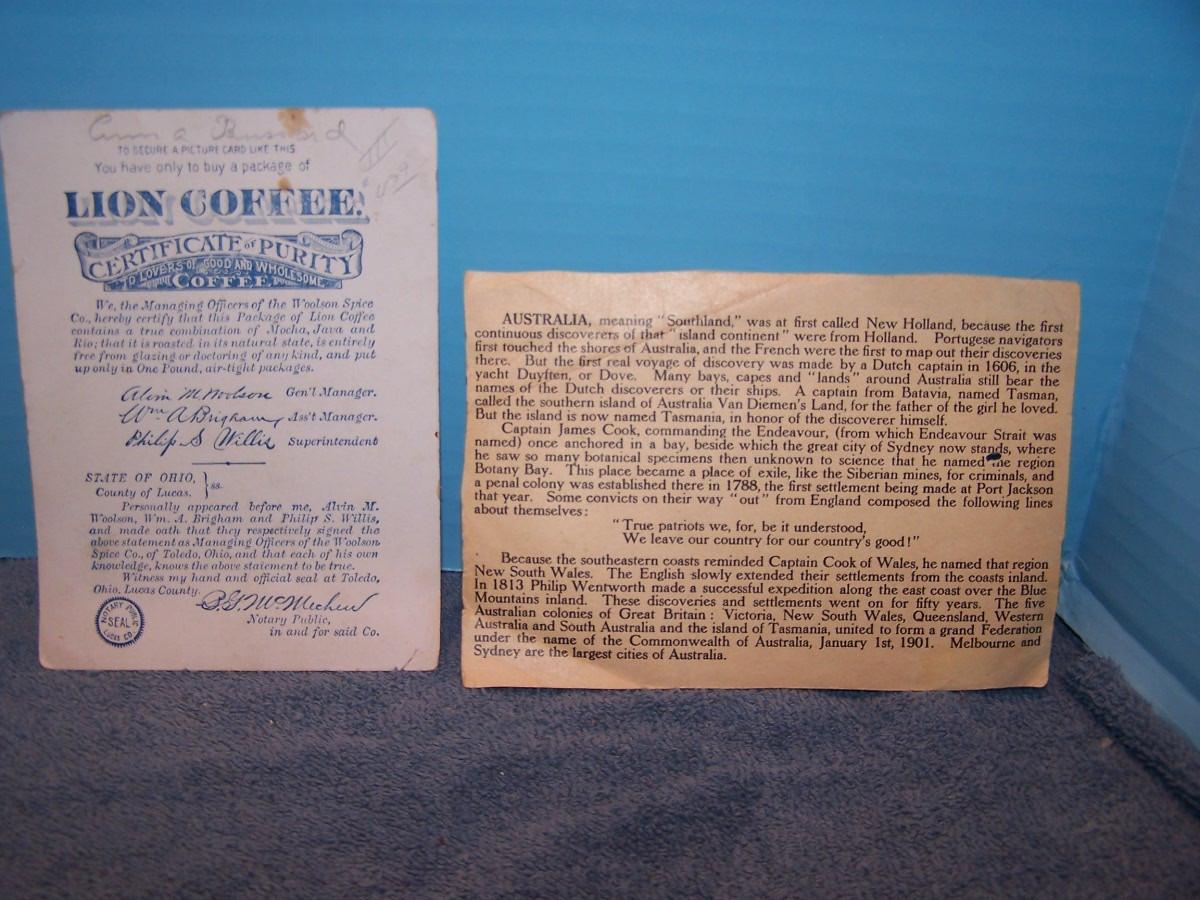 TO SECURE A PICTURE CARD LIKE THIS
You have only to buy a package of
LION COFFEE.
CERTIFICATE of PURITY
TO LOVERS OF GOOD AND WHOLESOME
COFFEE.
We, the Managing Officers of the Woolson Spice
Co., hereby certify that this Package of Lion Coffee
contains a true combination of Mocha, Java and
Rio; that it is roasted in its natural state, is entirely
free from glazing or doctoring of any kind, and put
up only in One Pound, air-tight packages.
Alvin M Woolson Gen'l Manager.
Wm A Brigham Ass't Manager.
Philip S Willis Superintendent
STATE OF OHIO, }ss.
County of Lucas.
Personally appeared before me, Alvin M.
Woolson, Wm. A. Brigham and Philip S. Willis,
and made oath that they respectively signed the
above statement as Managing Officers of the Woolson
Spice Co., of Toledo, Ohio, and that each of his own
knowledge, knows the above statement to be true.
Witness my hand and official seal at Toledo,
Ohio, Lucas County.
NOTARY PUBLIC
SEAL
LUCAS CO.
Notary Public,
in and for said Co.
AUSTRALIA, meaning "Southland," was at first called New Holland, because the first
continuous discoverers of that "island continent" were from Holland. Portugese navigators
first touched the shores of Australia, and the French were the first to map out their discoveries
there. But the first real voyage of discovery was made by a Dutch captain in 1606, in the
yacht Duyften, or Dove. Many bays, capes and "lands" around Australia still bear the
names of the Dutch discoverers or their ships. A captain from Batavia, named Tasman,
called the southern island of Australia Van Diemen's Land, for the father of the girl he loved.
But the island is now named Tasmania, in honor of the discoverer himself.
Captain James Cook, commanding the Endeavour, (from which Endeavour Strait was
named) once anchored in a bay, beside which the great city of Sydney now stands, where
he saw so many botanical specimens then unknown to science that he named the region
Botany Bay. This place became a place of exile, like the Siberian mines, for criminals, and
a penal colony was established there in 1788, the first settlement being made at Port Jackson
that year. Some convicts on their way "out" from England composed the following lines
about themselves:
"True patriots we, for, be it understood,
We leave our country for our country's good!"
Because the southeastern coasts reminded Captain Cook of Wales, he named that region
New South Wales. The English slowly extended their settlements from the coasts inland.
In 1813 Philip Wentworth made a successful expedition along the east coast over the Blue
Mountains inland. These discoveries and settlements went on for fifty years. The five
Australian colonies of Great Britain: Victoria, New South Wales, Queensland, Western
Australia and South Australia and the island of Tasmania, united to form a grand Federation
under the name of the Commonwealth of Australia, January 1st, 1901. Melbourne and
Sydney are the largest cities of Australia.